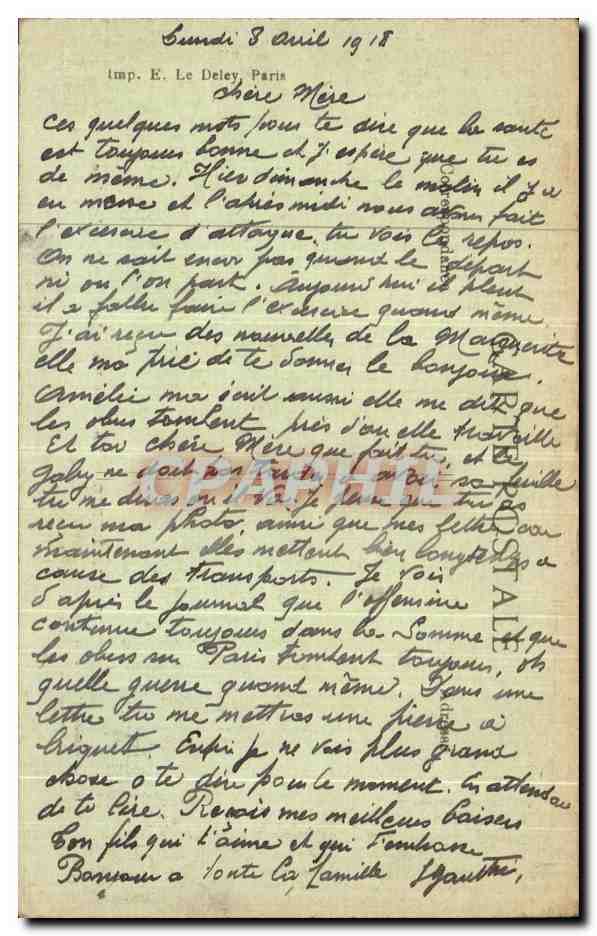 Lundi 8 avril 1918
Imp. E. Le Deley, Paris
chère Mère
Ces quelques mots pour te dire que la santé
est toujours bonne et j'espère que tu es
de même. Hier dimanche le matin il y a
eu messe et l'après midi nous avons fait
l'exercice d'attaque, tu vois le repos.
On ne sait encor pas quand le départ
ni ou l'on part. Aujourd'hui il pleut
il a fallu faire l'exercice quand même.
J'ai reçu des nouvelles de la Marguerite
elle m'a prié de te donner le bonjour.
Amélie ma écrit aussi elle me dit que
les obus tombent près d'ou elle travaille
Et toi chère Mère que fait tu, et la
Gaby ne doit pas tarder a avoir sa
tu me diras ou il va. Je pense que tu as
reçu ma photo, ainsi que mes lettres car
maintenant elles mettent bien longtemps a
cause des transports. Je vois
d'après le journal que l'offensive
continue toujours dans la Somme et que
les obus sur Paris tombent toujours, oh
quelle guerre quand même. Dans une
lettre tu me mettras une pierre a
briquet. Enfin je ne vois plus grand
chose a te dire pour le moment. En attendant
de te lire. Reçois mes meilleurs baisers
Ton fils qui t'aime et qui t'embrasse
Bonjour a toute la famille
CARTE POSTALE
Correspondance
Adresse
CPARHAMA